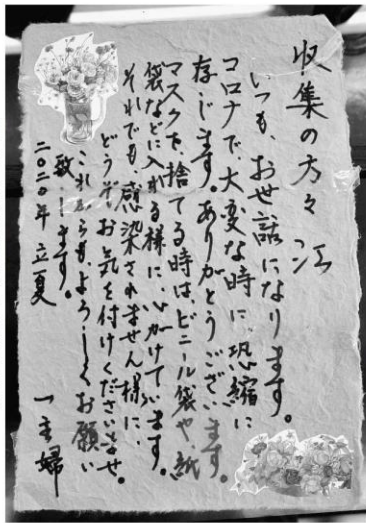 収集の方々 江
いつも、お世話になります。
コロナで、大変な時に、恐縮に
存じます。ありがとうございます。
マスクを、捨てる時は、ビニール袋や、紙
袋などに入れる様に、心がけています。
それでも、感染されません様に、
どうぞお気を付けくださいませ。
これからも、よろしくお願い
致します。
二〇二〇年 立夏
一主婦